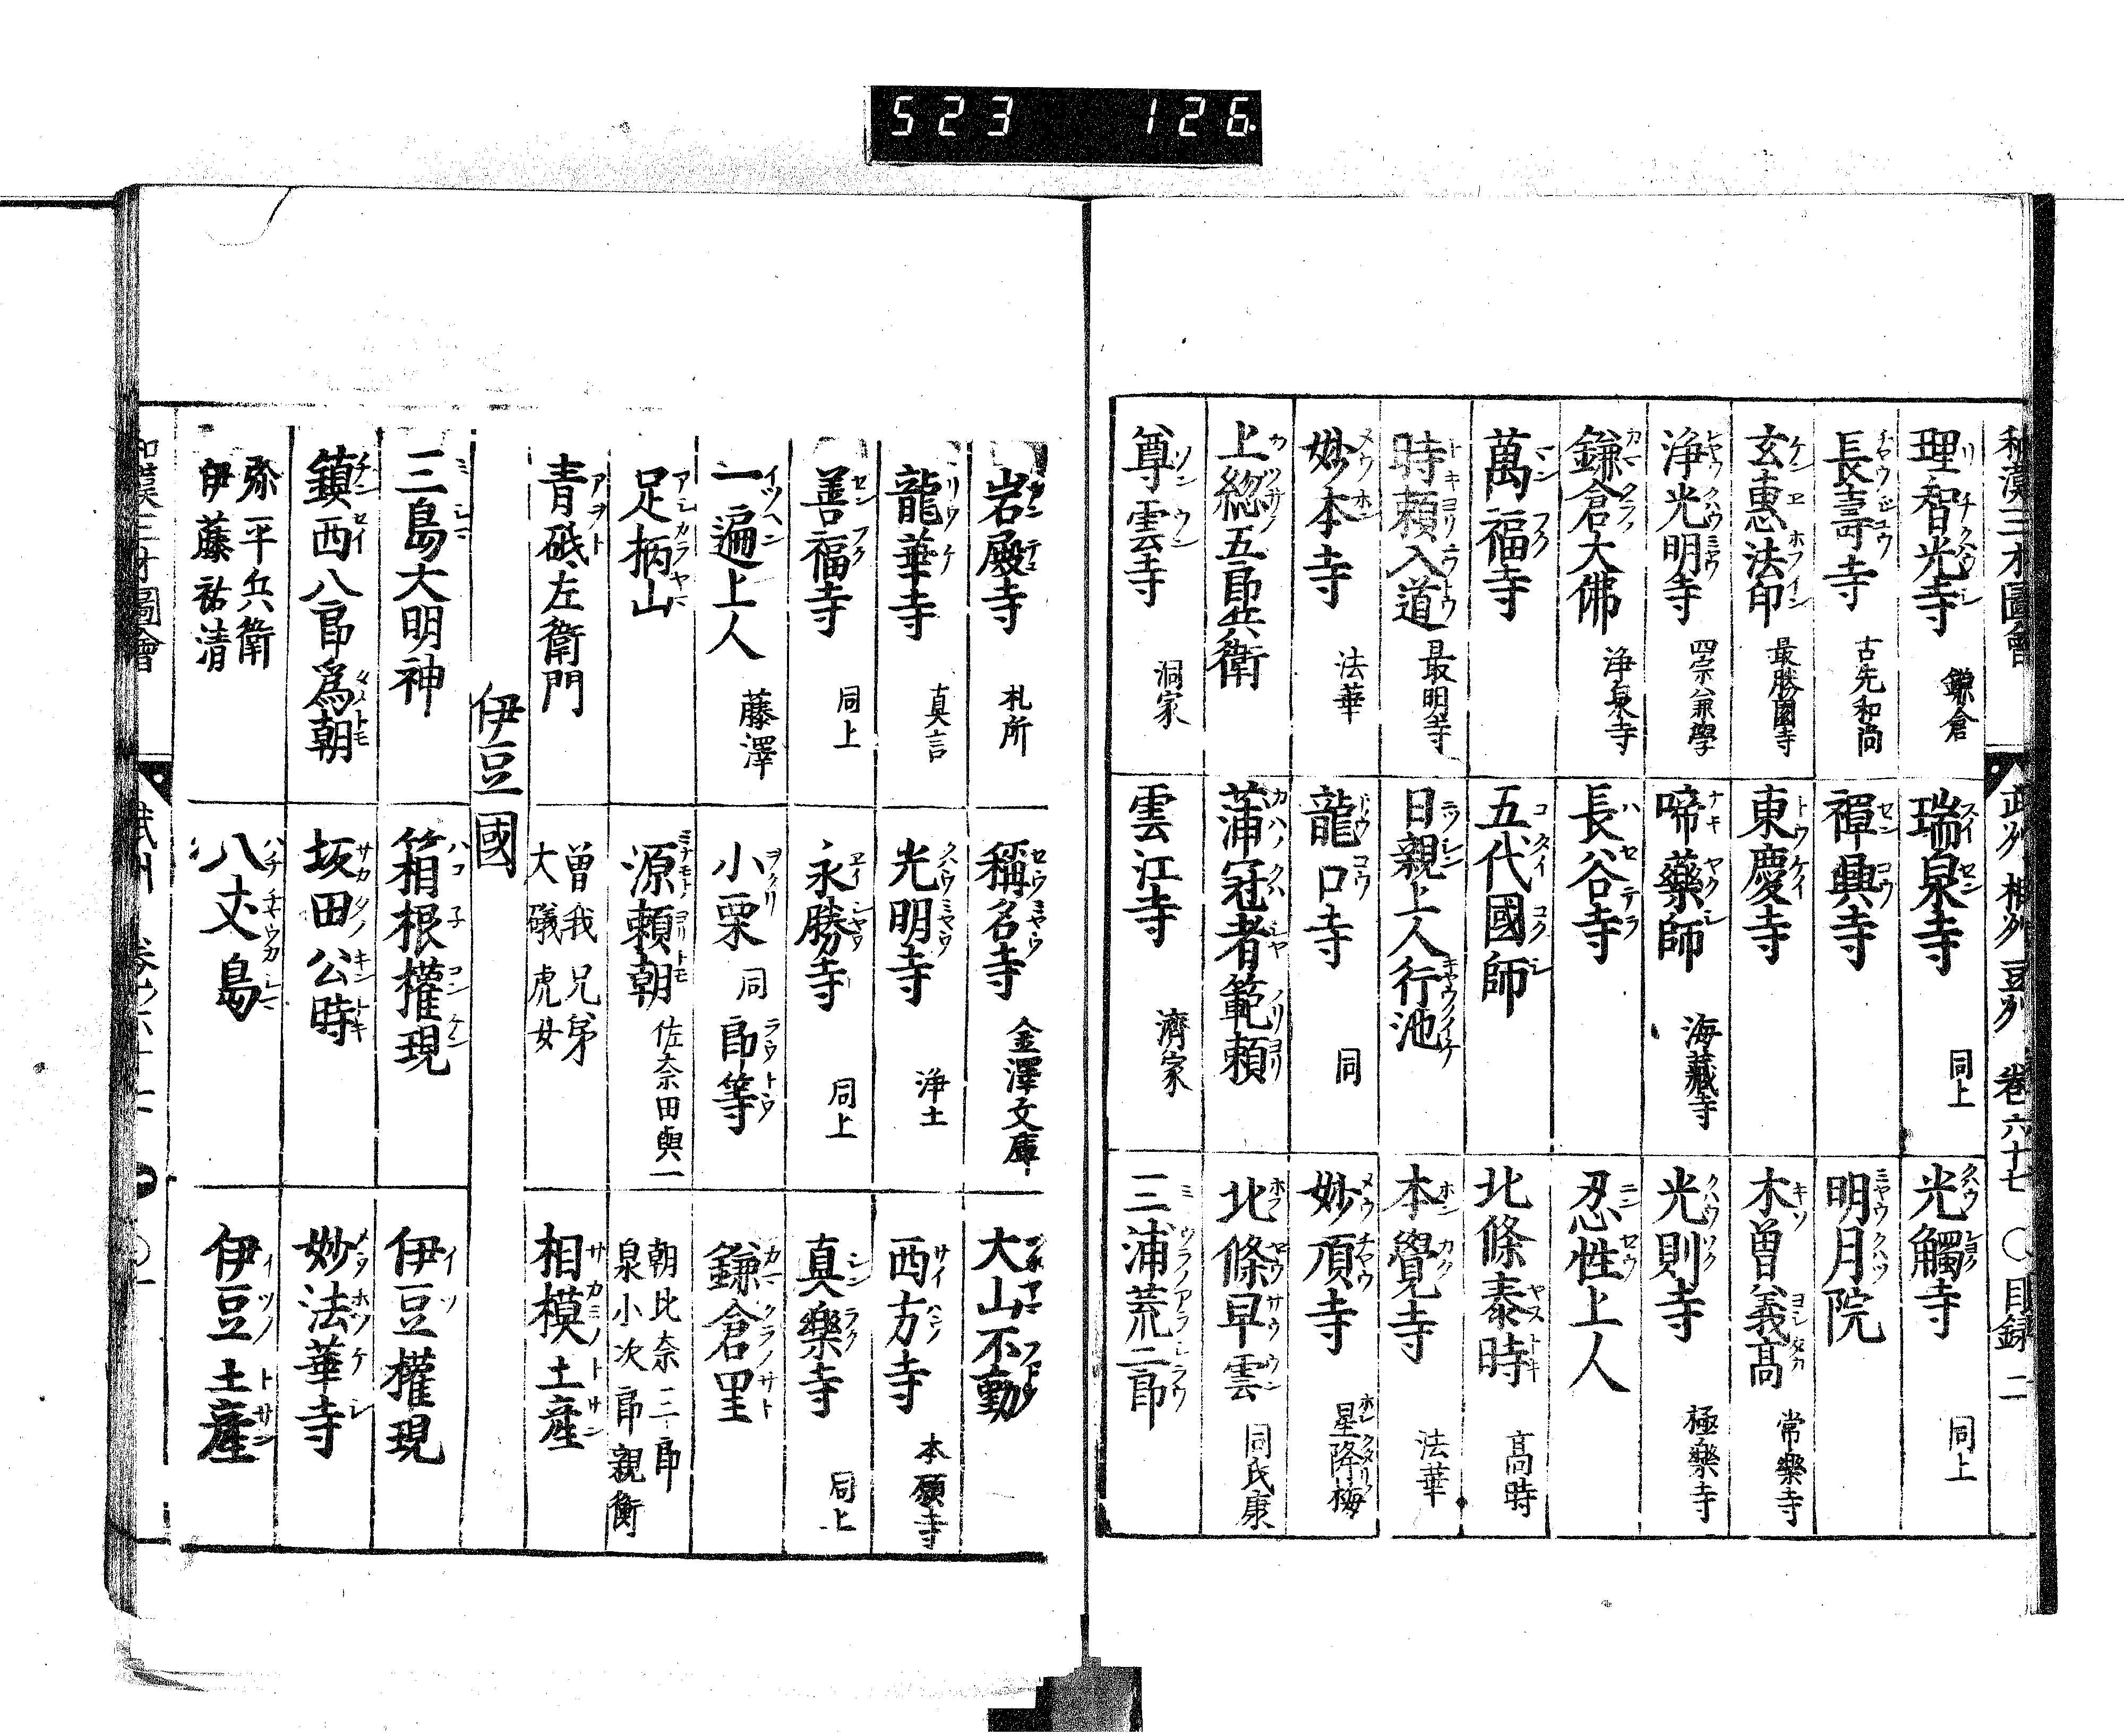 523 126
和漢三才圖會
武州 相州 豆州 卷六十七 〇目録 二
理智光寺 鎌倉
瑞泉寺 同上
光觸寺 同上
長壽寺 古先和尚
禪興寺
明月院
玄惠法印 最勝園寺
東慶寺
木曽義髙 常樂寺
浄光明寺 四宗兼學
啼藥師 海藏寺
光則寺 極樂寺
鎌倉大佛 浄泉寺
長谷寺
忍性上人
萬福寺
五代國師
北條泰時 高時
時頼入道 最明寺
日親上人行池
本覺寺 法華
妙本寺 法華
龍口寺 同
妙頂寺 星降梅
上総五郎兵衛
蒲冠者範頼
北條早雲 同氏康
尊雲寺 洞家
雲江寺 濟家
三浦荒二郎
岩殿寺 札所
稱名寺 金澤文庫
大山不動
龍華寺 真言
光明寺 浄土
西方寺 本願寺
善福寺 同上
永勝寺 同上
真樂寺 同上
一遍上人 藤澤
小栗 同郎等
鎌倉里
足柄山
源頼朝 佐奈田與一
朝比奈三郎
泉小次郎親衡
青砥左衛門
曽我兄弟
大磯虎女
相模土産
伊豆國
三島大明神
箱根權現
伊豆權現
鎮西八郎爲朝
坂田公時
妙法華寺
弥平兵衛
伊藤祐清
八丈島
伊豆土産
和漢三才圖會
武州 卷之六十七